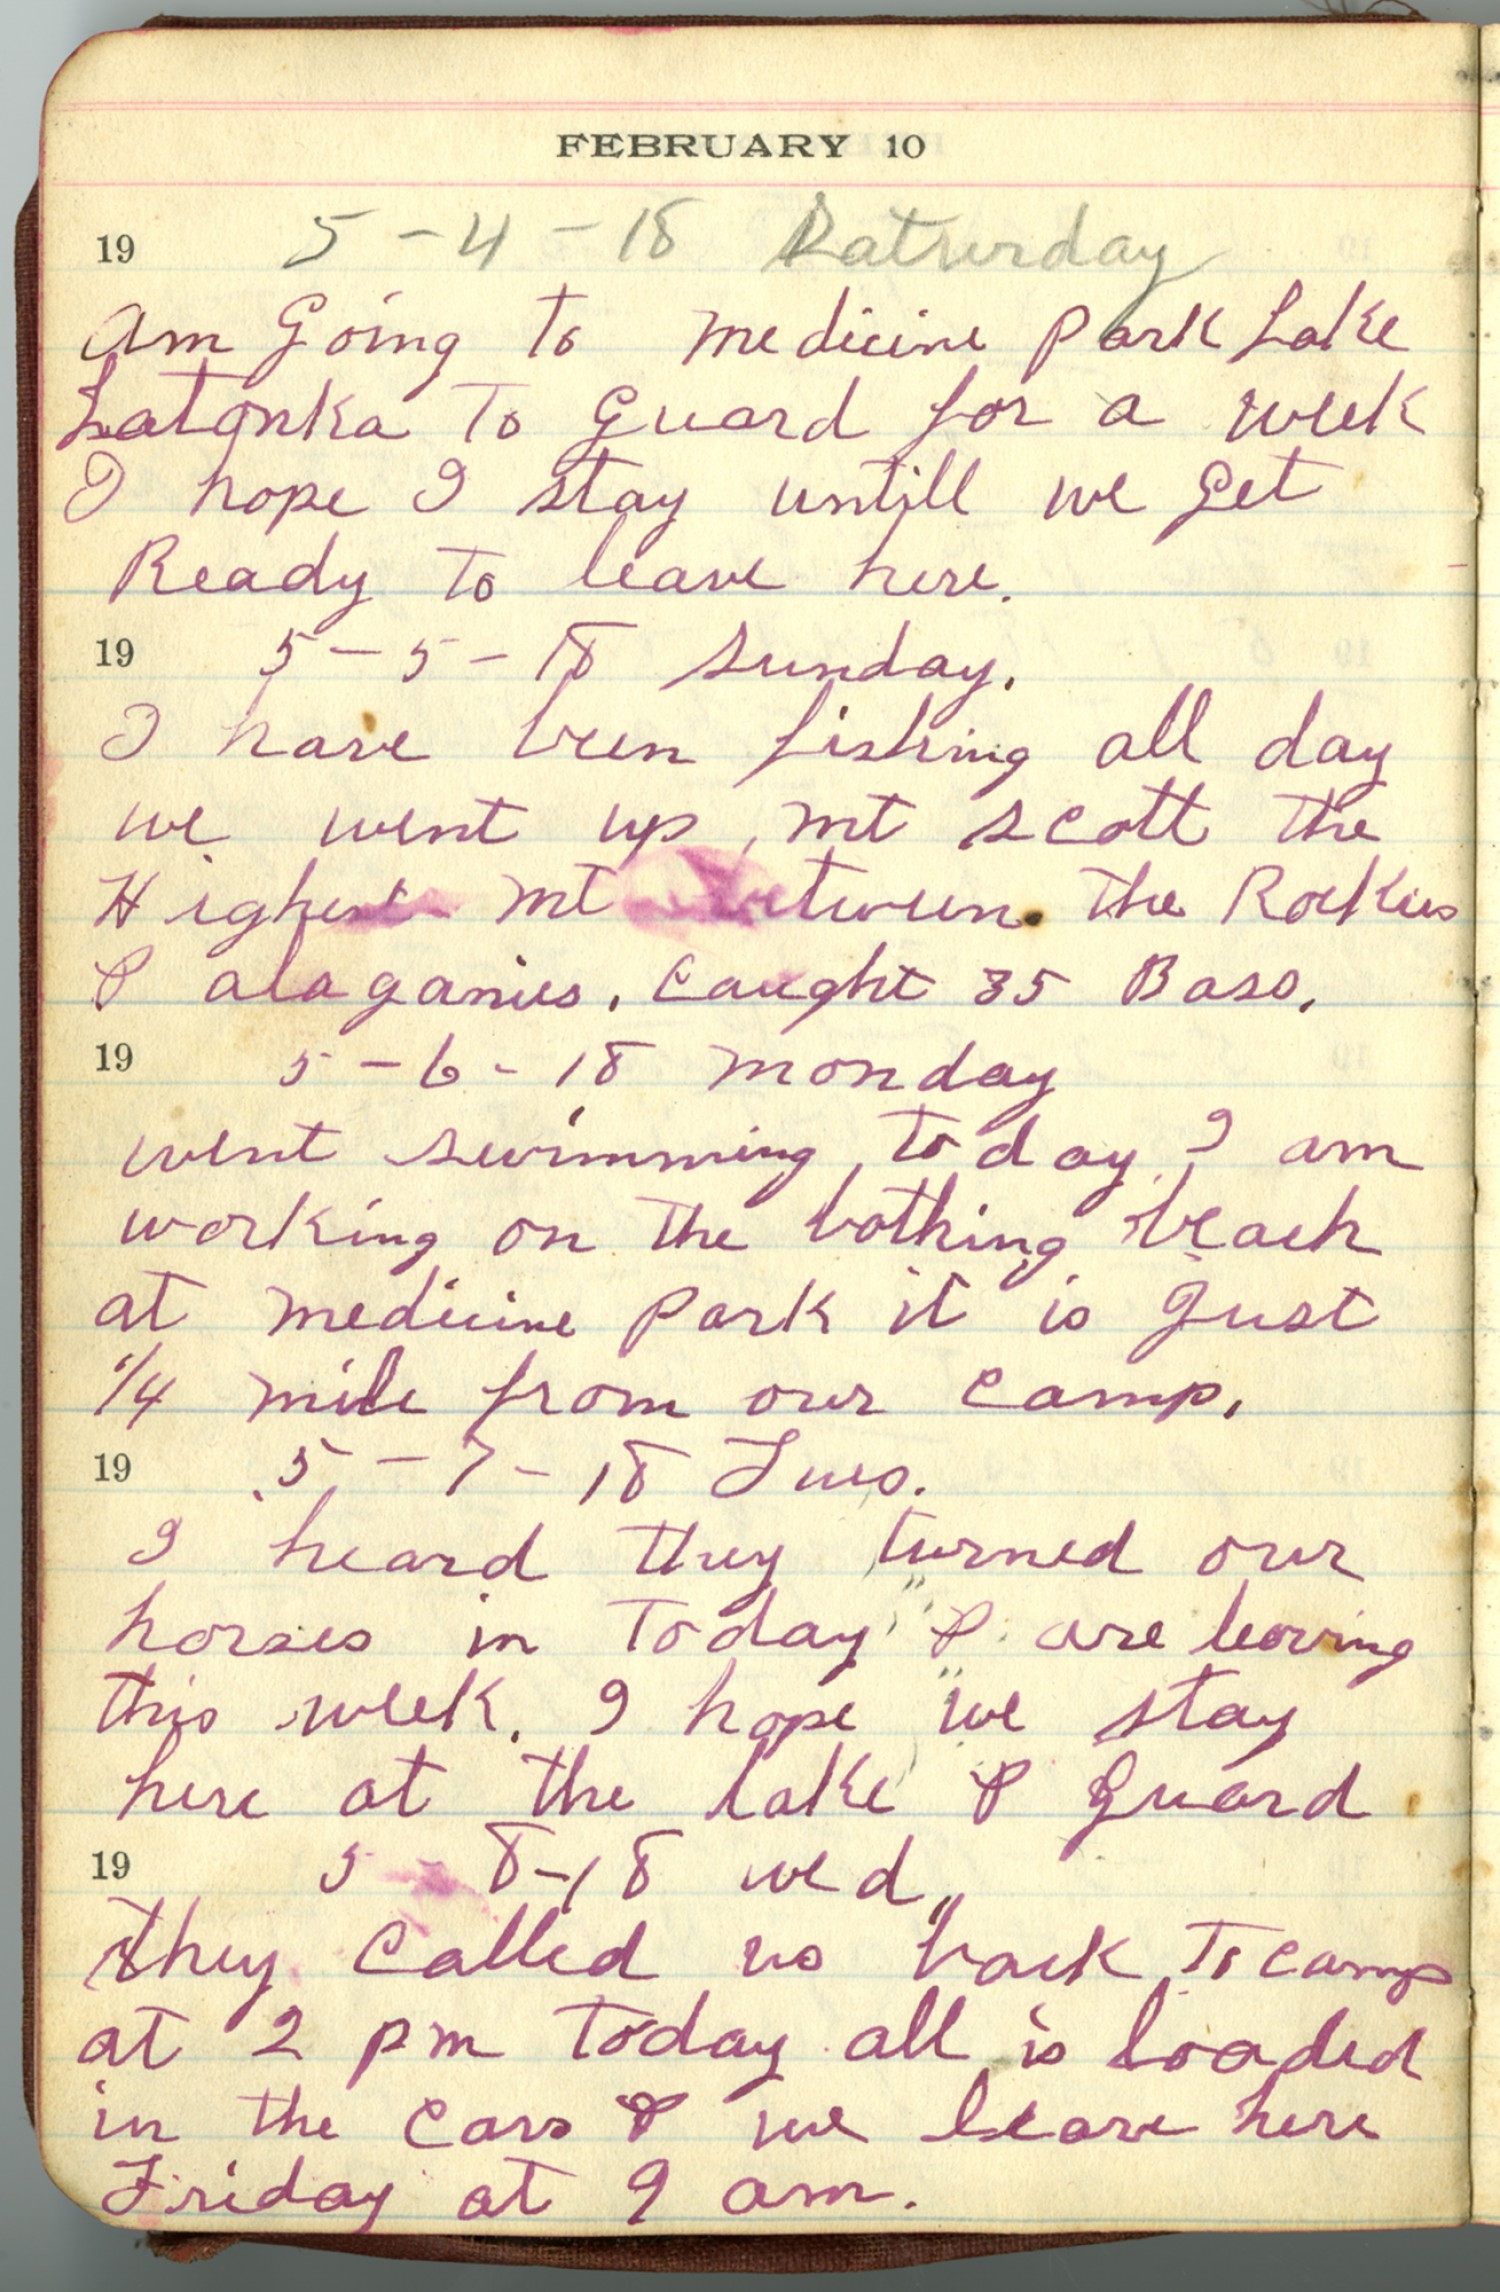 FEBRUARY 10
19 5-4-18 Saturday
Am Going to medicine Park Lake
Latonka To Guard for a week
I hope I stay untill we Get
Ready to leave here.
19 5-5-18 Sunday.
I have been fishing all day
we went up, mt Scott the
Highest mt between the Rockies
& alaganies. Caught 35 Bass.
19 5-6-18 monday
went swimming today I am
working on the bathing beach
at medicine Park it is Just
1/4 mile from our camp.
19 5-7-18 Tues.
I heard they turned our
horses in Today & are leaving
this week. I hope we stay
here at the lake & Guard
19 5-8-18 wed,
They called us back To camp
at 2 pm today all is loaded
in the Cars & we leave here
Friday at 9 am.